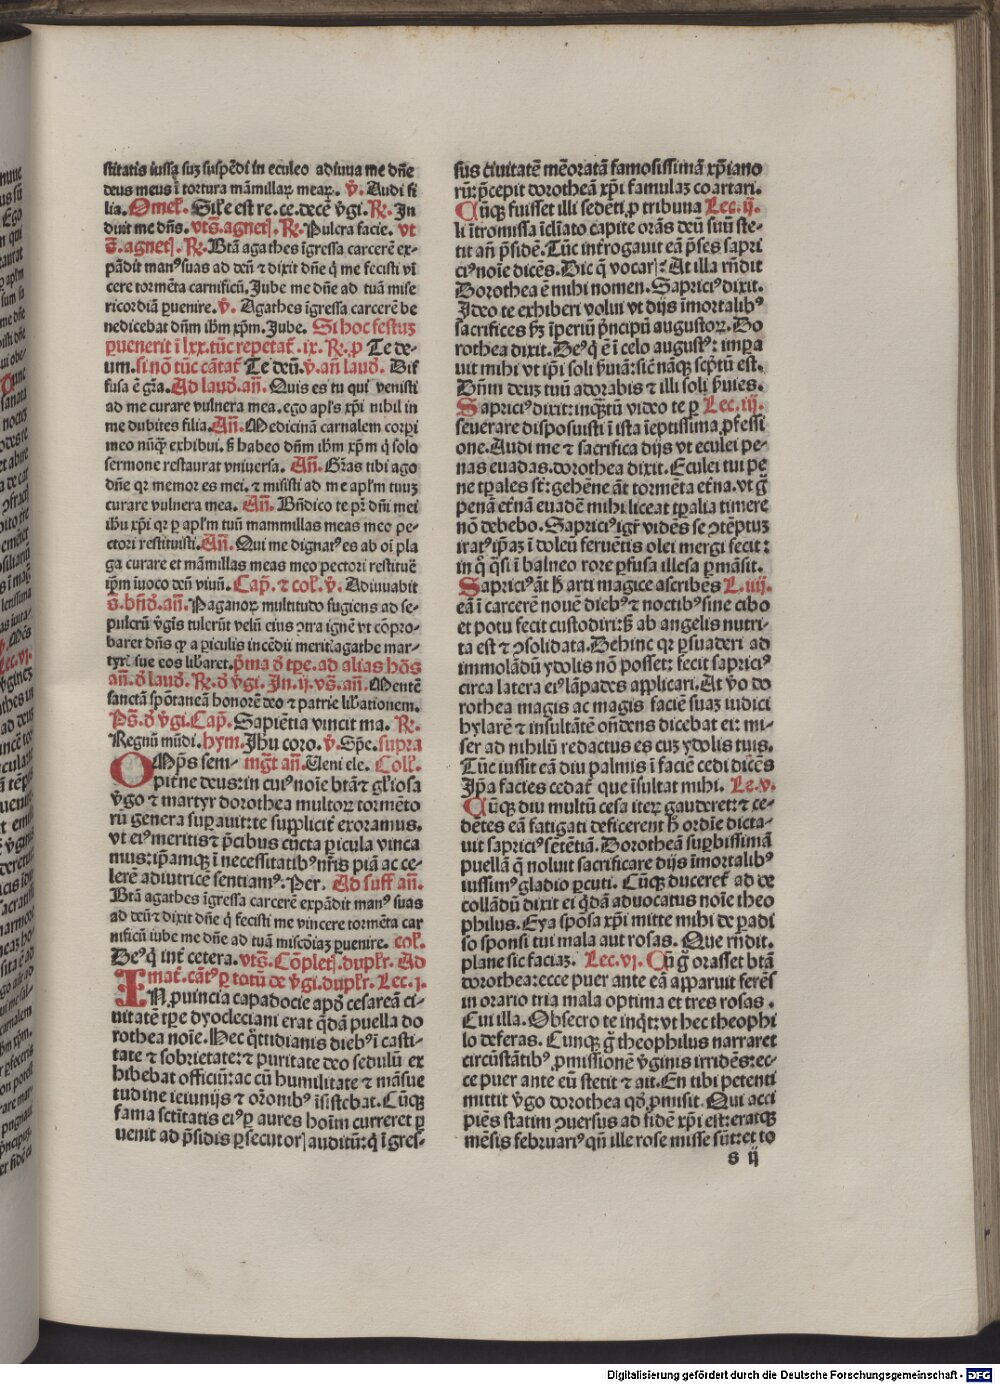 stitatis iussa suꝫ suspēdi in eculeo adiuua me dn̄e
deus meus ī tortura māmillaꝝ meaꝝ. v̄. Audi fi
lia. Omel̄. Sil̄e est re. ce. decē v̄gi. ꝶ. In
duit me dn̄s. vts̄. agnetꝭ. ꝶ. Pulcra facie. vt
s̄. agnetꝭ. ꝶ. Btā agathes īgressa carcerē ex-
pādit manꝰ suas ad deū ⁊ dixit dn̄e q̄ me fecisti vī
cere tormēta carnificū. Jube me dn̄e ad tuā mise
ricordiā ꝑuenire. v̄. Agathes īgressa carcerē be
nedicebat dn̄m ih̄m xp̄m. Jube. Si hoc festuꝫ
ꝑuenerit ī lxx. tūc repetat̄. ix. ꝶ. ꝓ Te de-
um. si nō tūc cātat̄ Te deū. v̄. an̄ laud̄. Dif
fusa ē gr̄a. Ad laud̄. an̄. Quis es tu qui venisti
ad me curare vulnera mea. ego apl̄s xp̄i nihil in
me dubites filia. An̄. Medicinā carnalem corꝑi
meo nūq̄ exhibui. s̄ habeo dn̄m ih̄m xp̄m q̄ solo
sermone restaurat vniuersa. An̄. Gr̄as tibi ago
dn̄e qr memor es mei. ⁊ misisti ad me apl̄m tuuꝫ
curare vulnera mea. An̄. Bn̄dico te pr̄ dn̄i mei
ih̄u xp̄i qr ꝑ apl̄m tuū mammillas meas meo pe-
ctori restituisti. An̄. Qui me dignatꝰ es ab oī pla
ga curare et māmillas meas meo pectori restituē
ip̄m īuoco deū viuū. Cap̄. ⁊ col̄. v̄. Adiuuabit
s̄. bn̄d̄. an̄. Paganoꝝ multitudo fugiens ad se-
pulcrū v̄gīs tulerūt velū eius ↄtra ignē vt cōpro-
baret dn̄s ꝙ a ꝑiculis incēdii meritꝭ agathe mar-
tyrꝭ sue eos lib̄aret. p̄ma d̄ tp̄e. ad alias hōs
an̄. d̄ laud̄. ꝶ. d̄ v̄gi. In. ij. vs̄. an̄. Mentē
sanctā spōtaneā honorē deo ⁊ patrie lib̄ationem.
Ps̄. d̄ v̄gi. Cap̄. Sapiētia vincit ma. ꝶ.
Regnū mūdi. hym. Jh̄u coro. v̄. Sp̄e. supra
OMp̄s sem- mḡt an̄. Veni ele. Coll̄.
pit̄ne deus: in cuiꝰ noīe btā⁊ gl̄iosa
v̄go ⁊ martyr dorothea multoꝝ tormēto
rū genera suꝑauit: te supplicit̄ exoramus.
vt eiꝰ meritis ⁊ p̄cibus cūcta ꝑicula vinca
mus: ip̄amqꝫ ī necessitatibꝰ nr̄is piā ac ce-
lerē adiutricē sentiamꝰ. Per. Ad suff an̄.
Btā agathes īgressa carcerē expādit manꝰ suas
ad deū ⁊ dixit dn̄e q̄ fecisti me vincere tormēta car
nificū iube me dn̄e ad tuā miscōiaꝫ ꝑuenire. col̄.
Deꝰ q̄ int̄ cetera. vts̄. Cōpletꝭ. dupl̄r. Ad
mat̄. cātꝰ ꝑ totū de v̄gi. dupl̄r. Lec. i.
IN ꝓuincia capadocie apd̄ cesareā ci-
uitatē tp̄e dyocleciani erat q̄dā puella do
rothea noīe. Hec q̄tidianis diebꝰ ī casti-
tate ⁊ sobrietate: ⁊ puritate deo sedulū ex
hibebat officiū: ac cū humilitate ⁊ māsue
tudine ieiunijs ⁊ or̄onibꝰ īsistebat. Cūqꝫ
fama sctītatis eiꝰ ꝑ aures hoīm curreret ꝑ
uenit ad p̄sidis ꝑsecutorꝭ auditū: q̄ īgres-
sus ciuitatē mēoratā famosissimā xp̄iano
rū: p̄cepit dorotheā xp̄i famulaꝫ coartari.
Cūqꝫ fuisset illi sedeti ꝓ tribuna Lec. ij.
li ītromissa īcliato capite orās deū suū ste-
tit an̄ p̄sidē. Tūc int̄rogauit eā p̄ses sapri
ciꝰ noīe dicēs. Dic q̄ vocarꝭ: At illa rn̄dit
Dorothea ē mihi nomen. Sapriciꝰ dixit.
Ideo te exhiberi volui vt dijs īmortalibꝰ
sacrifices s̄ꝫ īperiū p̄ncipū augustoꝝ. Do
rothea dixit. Deꝰ q̄ ē ī celo augustꝰ: imꝑa
uit mihi vt ip̄i soli s̄uiā: sic̄ nāqꝫ sep̄tū est.
Dn̄m deuꝫ tuū adorabis ⁊ illi soli s̄uies.
Sapriciꝰ dixit: inqꝫtū video te ꝑ Lec. iij.
seuerare disposuisti ī ista īeptissima ꝓfessi
one. Audi me ⁊ sacrifica dijs vt eculei pe-
nas euadas. dorothea dixit. Eculei tui pe
ne tꝑales st̄: gehēne āt tormēta et̄na. vt ḡ
penā et̄nā euadē mihi liceat tꝑalia timere
nō debebo. Sapriciꝰ igt̄ vidēs se ↄtēptuꝫ
iratꝰ ip̄aꝫ ī doleū feruētis olei mergi fecit:
in q̄ q̄si ī balneo rore ꝑfusa illesa ꝑmāsit.
Sapriciꝰ āt h̄ arti magice ascribēs L. iiij.
eā ī carcerē nouē diebꝰ ⁊ noctibꝰ sine cibo
et potu fecit custodiri: s̄ ab angelis nutri-
ta est ⁊ ↄsolidata. Dehinc qr ꝑsuaderi ad
immolādū ydolis nō posset: fecit sapriciꝰ
circa latera eiꝰ lāpades applicari. At v̄o do
rothea magis ac magis faciē suaꝫ iudici
hylarē ⁊ insultātē on̄dens dicebat ei: mi-
ser ad nihilū redactus es cuꝫ ydolis tuis.
Tūc iussit eā diu palmis ī faciē cedi dicēs
Ip̄a facies cedat̄ que īsultat mihi. Le. v.
Cūqꝫ diu multū cesa iteꝝ gauderet: ⁊ ce-
dētes eā fatigati deficerent h̄ ordīe dicta-
uit sapriciꝰ sētētiā. Dorotheā suꝑbissimā
puellā q̄ noluit sacrificare dijs īmortalibꝰ
iussimꝰ gladio ꝑcuti. Cūqꝫ duceret̄ ad de
collādū dixit ei q̄dā aduocatus noīe theo
philus. Eya spōsa xp̄i mitte mihi de ꝑadi
so sponsi tui mala aut rosas. Que rn̄dit.
plane sic faciaꝫ. Lec. vi. Cū ḡ orasset btā
dorothea: ecce puer ante eā apparuit ferēs
in orario tria mala optima et tres rosas.
Cui illa. Obsecro te inq̄t: vt hec theophi
lo deferas. Cunqꝫ ḡ theophilus narraret
circūstātibꝰ ꝓmissionē v̄ginis irridēs: ec-
ce puer ante eū stetit ⁊ ait. En tibi petenti
mittit v̄go dorothea qd̄ ꝓmisit. Qui acci
piēs statim ↄuersus ad fidē xp̄i est: eratqꝫ
mēsis februariꝰ qn̄ ille rose misse sūt: et to
s ij
Digitalisierung gefördert durch die Deutsche Forschungsgemeinschaft - DFG